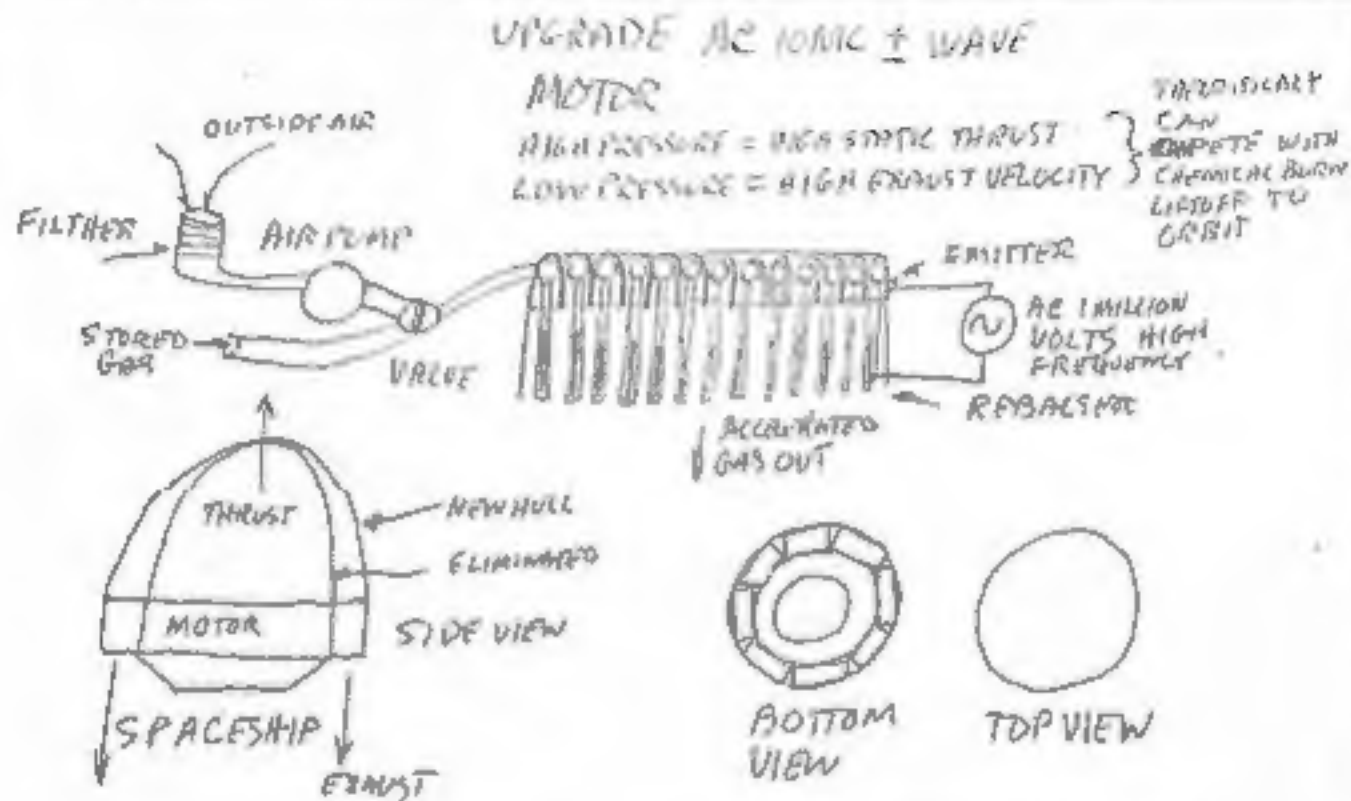 UPGRADE AC IONIC ± WAVE
MOTOR
HIGH PRESSURE = HIGH STATIC THRUST
LOW PRESSURE = HIGH EXHAUST VELOCITY
CAN
WITH
CHEMICAL BURN
LIFTOFF TO
ORBIT
OUTSIDE AIR
FILTHER
AIR PUMP
STORED
GAS
VALVE
EMITTER
AC 1 MILLION
VOLTS HIGH
FREQUENCY
ACCELERATED
GAS OUT
THRUST
NEW HULL
ELIMINATED
MOTOR
SIDE VIEW
SPACESHIP
EXAUST
BOTTOM
VIEW
TOP VIEW